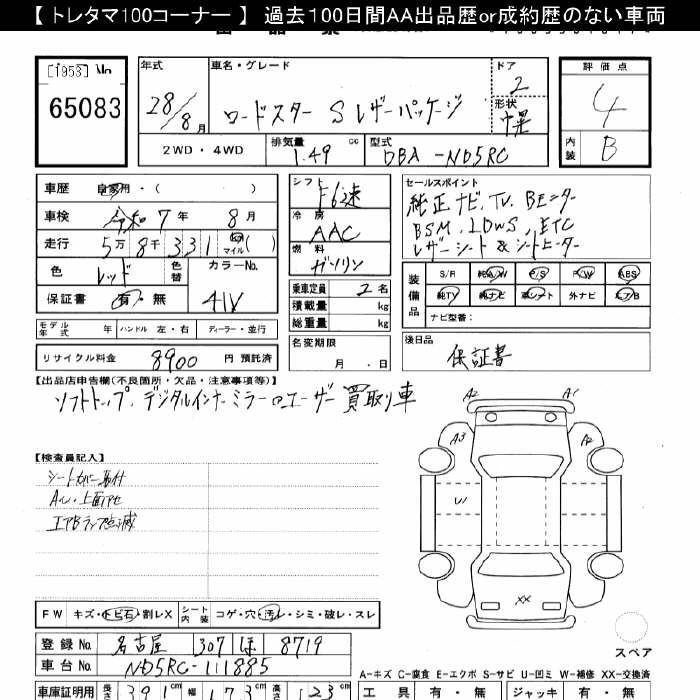 【 トレタマ100コーナー 】 過去100日間AA出品歴or成約歴のない車両
[1958] No
65083
年式
28/8月
車名・グレード
ロードスター Sレザーパッケージ
ドア
2
形状
評価点
4
内装
B
2WD・4WD
排気量
1.49 cc
型式
DBA-ND5RC
車歴 自家用・( )
車検 令和7年8月
走行 5万8千331 km マイル( )
色 レッド
色替
カラーNo.
41V
保証書 有・無
モデル年式 年 ハンドル 左・右 ディーラー・並行
リサイクル料金 8900 円 預託済
シフト F6速
冷房 AAC
燃料 ガソリン
乗車定員 2名
積載量 kg
総重量 kg
名変期限
月・日
セールスポイント
純正ナビ.TV.Bモニター
BSM.LDWS,ETC
レザーシート&シートヒーター
装備品
S/R 純A/W P/S P/W ABS
純TV 純ナビ 革シート 外ナビ エアB
ナビ型番:
後日品
保証書
【出品店申告欄(不良箇所・欠品・注意事項等)】
ソフトトップ.デジタルインナーミラー ユーザー買取り車
【検査員記入】
シートカバー取付
エアBランプ点滅
A2 A1
A3 A2
W
XX
FW キズ・トビ石・割レX
シート内装 コゲ・穴・汚レ・シミ・破レ・スレ
スペア
登録No. 名古屋 307 ほ 8719
車台No. ND5RC-111885
A-キズ C-腐食 E-エクボ S-サビ U-凹ミ W-補修 XX-交換済
車庫証明用 長さ 391cm 幅 173cm 高さ 123cm
工具 有・無 ジャッキ 有・無